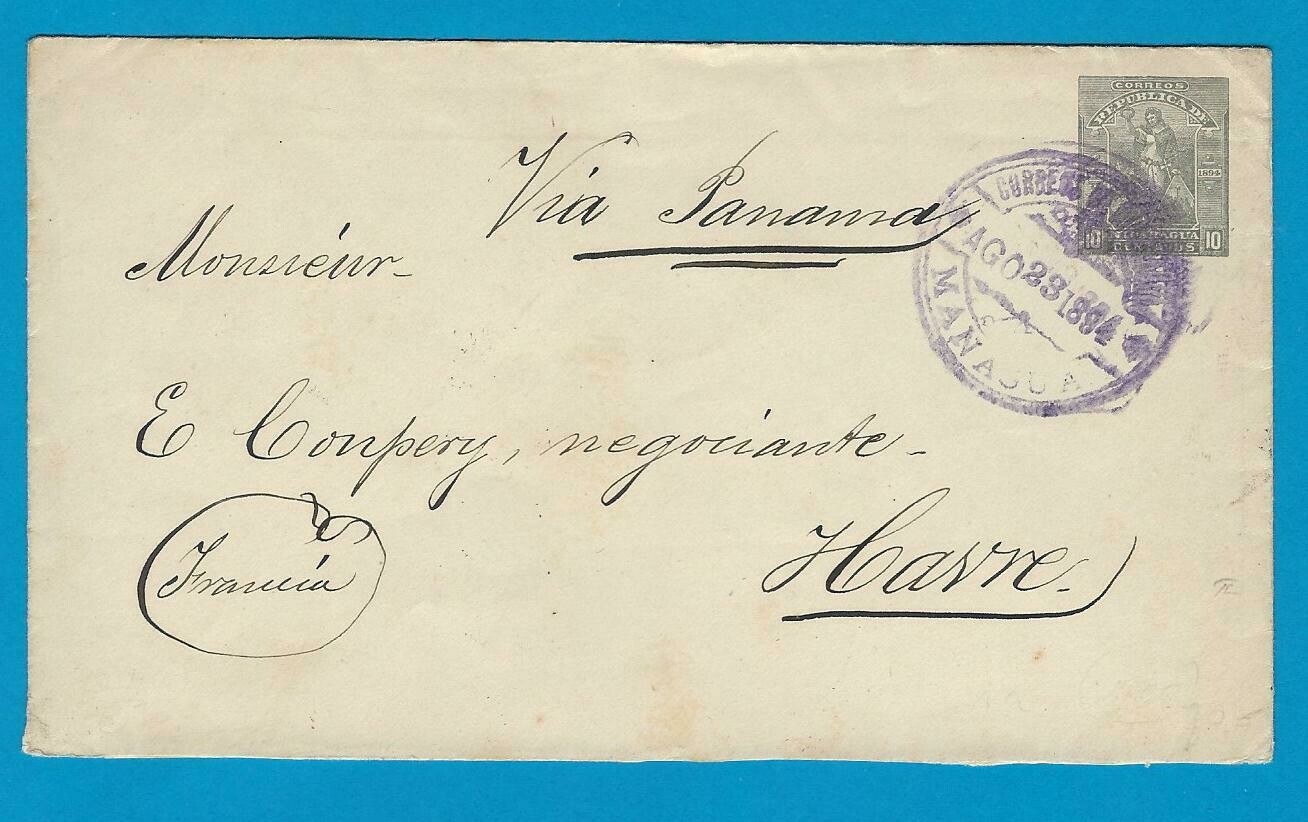 CORREOS
REPUBLICA DE
1894
NICARAGUA
10 CENTAVOS 10
Via Panama
CORREOS DE
AGO 23 1894
MANAGUA
Monsieur
E Coupery, negociante
Havre.
Francia